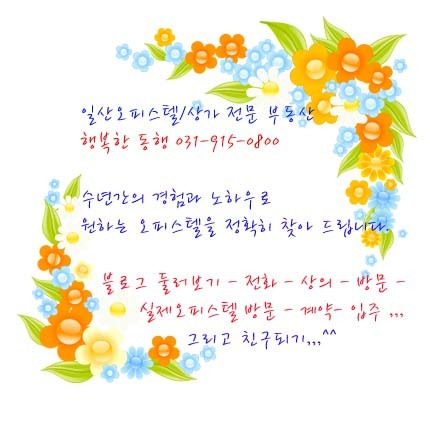 일산오피스텔/상가 전문 부동산
행복한 동행 031-915-0800
수년간의 경험과 노하우로
원하는 오피스텔을 정확히 찾아 드립니다.
블로그 둘러보기 - 전화 - 상의 - 방문 -
실제오피스텔 방문 - 계약- 입주 ,,,
그리고 친구되기,,,^^